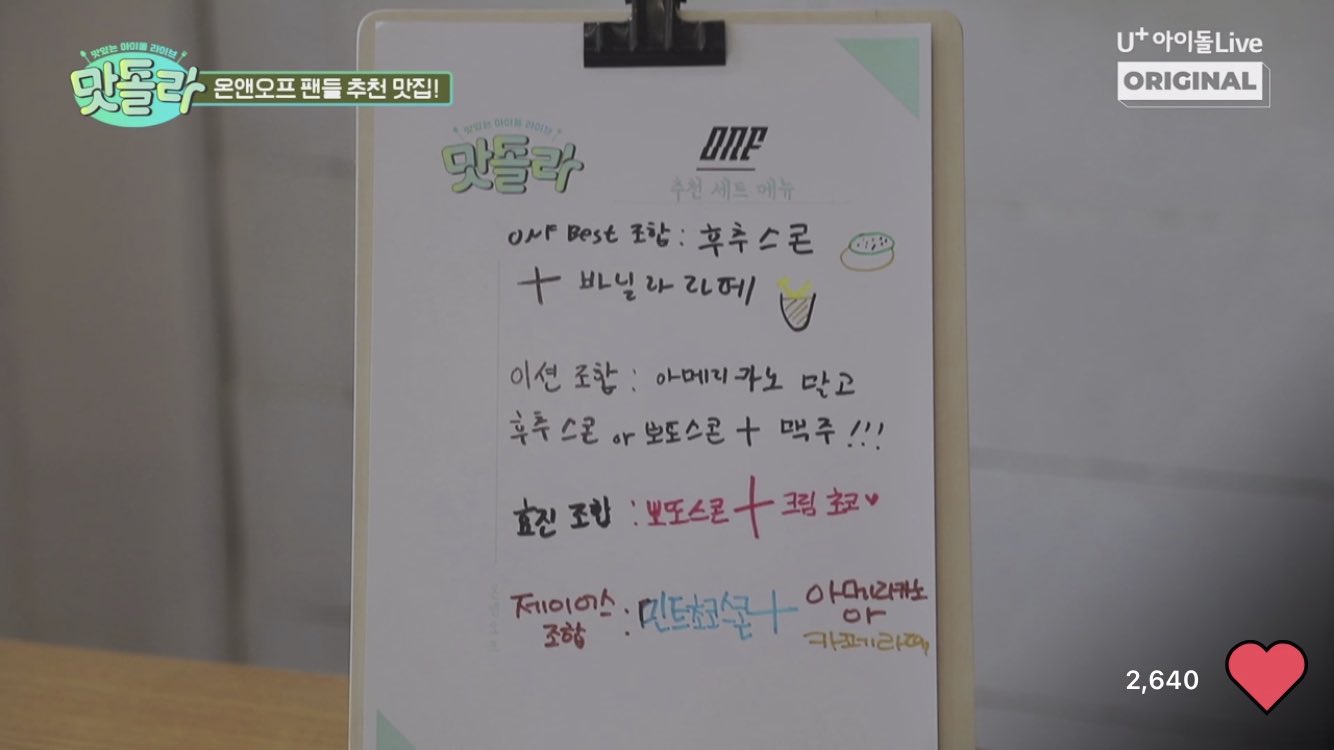 맛있는 아이돌 라이브
맛돌라
온앤오프 팬들 추천 맛집!
U+아이돌Live
ORIGINAL
맛있는 아이돌 라이브
맛돌라
ONF
추천 세트 메뉴
ONF Best 조합 : 후추스콘
+ 바닐라라떼
이션 조합 : 아메리카노 말고
후추스콘 or 뽀또스콘 + 맥주!!!
효진 조합 : 뽀또스콘 + 크림 초코♥
제이어스 : 민트초코스콘 + 아메리카노
조합 야
2,640